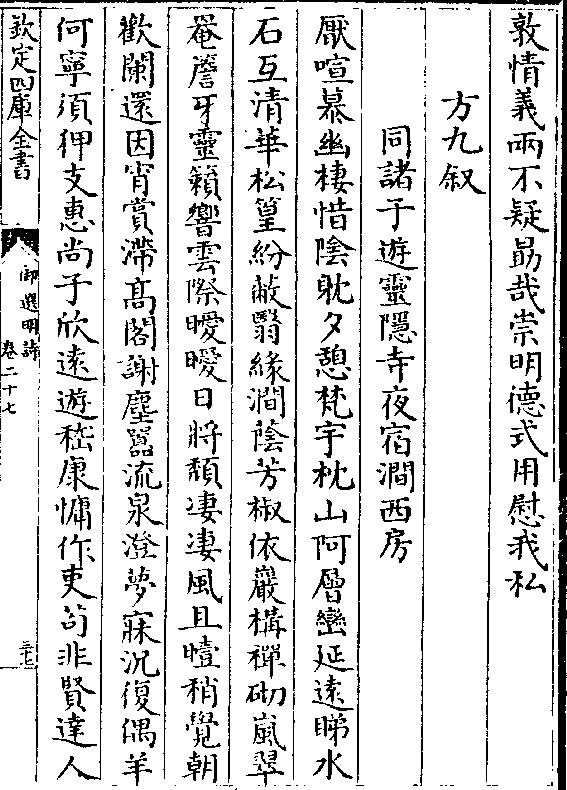 敦情義兩不疑勗哉崇明德式用慰我私
方九叙
同諸子遊靈隱寺夜宿澗西房
厭喧慕幽棲惜陰耽夕憩梵宇枕山阿層巒延遠睇水
石互清華松篁紛蔽翳緣澗蔭芳椒依巖構禪砌嵐翠
罨簷牙靈籟響雲際曖曖日將頽凄凄風且曀稍覺朝
歡闌還因宵賞滯高閣謝塵囂流泉澄夢寐沉復偶羊
何寧須狎支惠尚子欣遠遊嵇康慵作吏茍非賢達人
欽定四庫全書
御選明詩
卷二十七
三十七